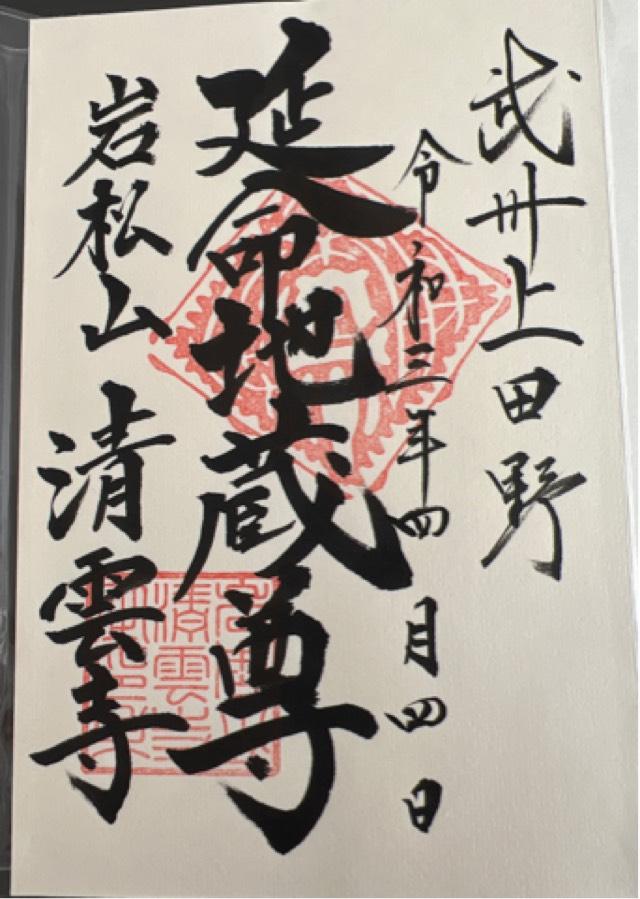 武州上田野
令和三年四月四日
延命地蔵尊
岩松山 清雲寺